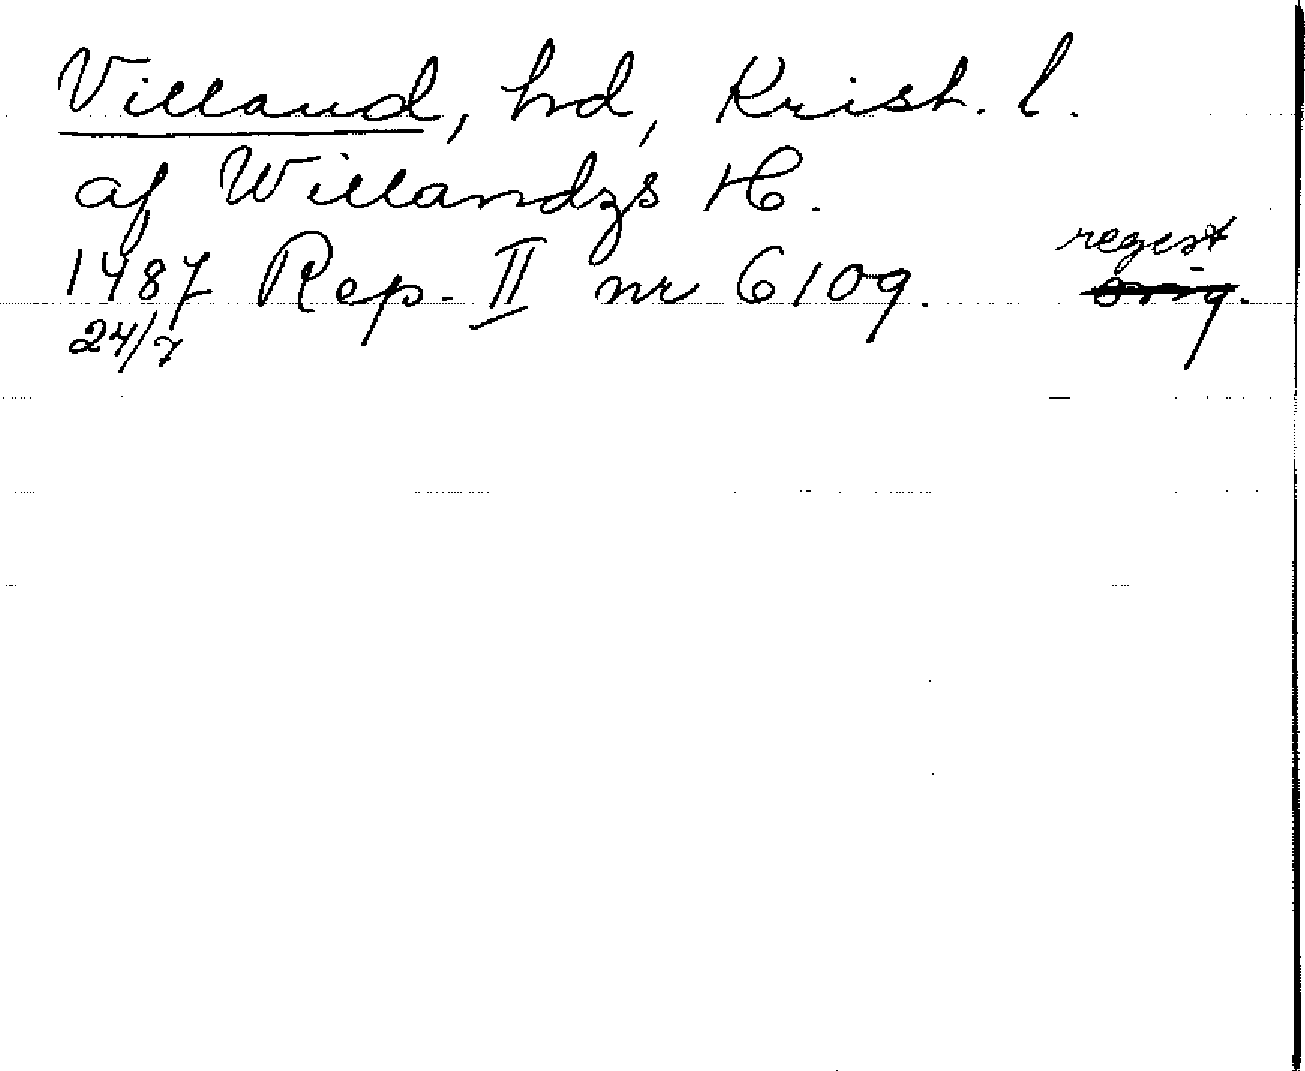 Villand, hd, Krist. l.
af Willandzs H.
regest
1487 Rep. II nr 6109. orig.
24/7